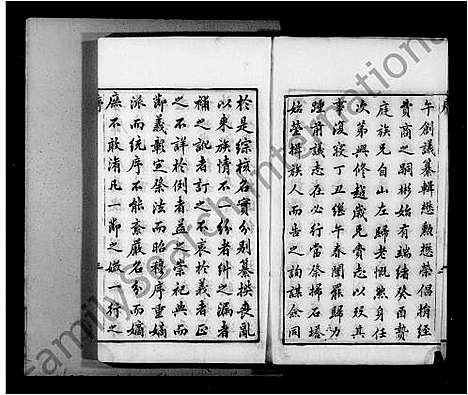 午創議纂輯懋勲懋榮倡捐經
費商之嗣彬始有端緒癸酉贄
庭族兄自山左歸老慨然身任
次第興修越歲兄賫志以歿其
事浚寢丁丑繼午春闈罷歸力
踵前議志在必行當祭掃石塔
始塋揖族人而告之詢謀僉同
於是綜核名實分別纂撰喪亂
以來族情不一紛者糾之漏者
補之訛者訂之不衷於義者正
之不詳於例者益之崇祀典而
節義彰定祭法而昭穆序重嫡
派而統序不能紊嚴名分而嫡
庶不敢淆凡一節之媺一行之
序
familysearch international